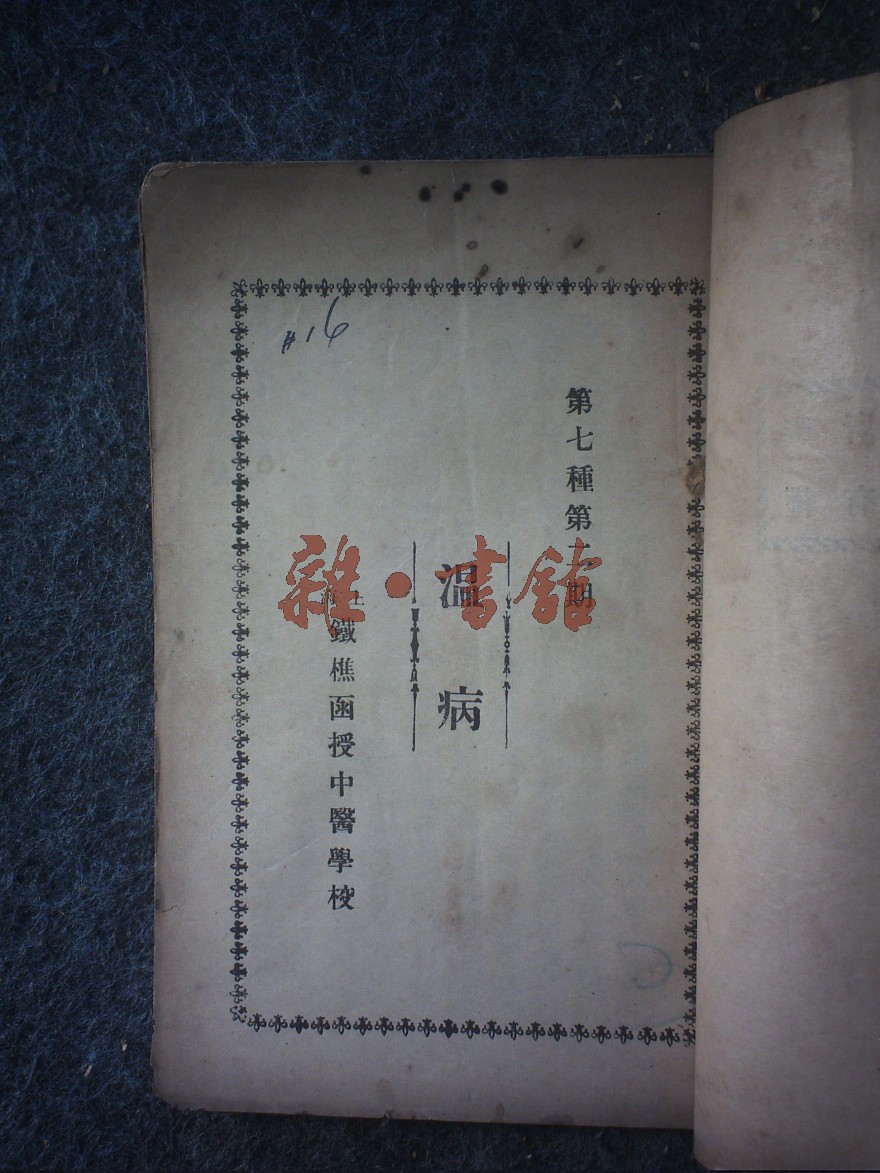 第七種第二期
温病
鐵樵函授中醫學校
#16
雜·書館